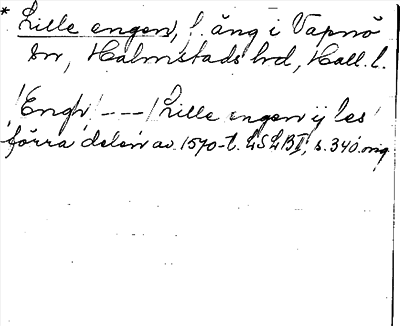 * Lille engen, f. äng i Vapnö
sn, Halmstads hd, Hall. l.
/Engh/ --- / Lille engen ij les
förra delen av 1570-t. LSLBII, s. 340 orig